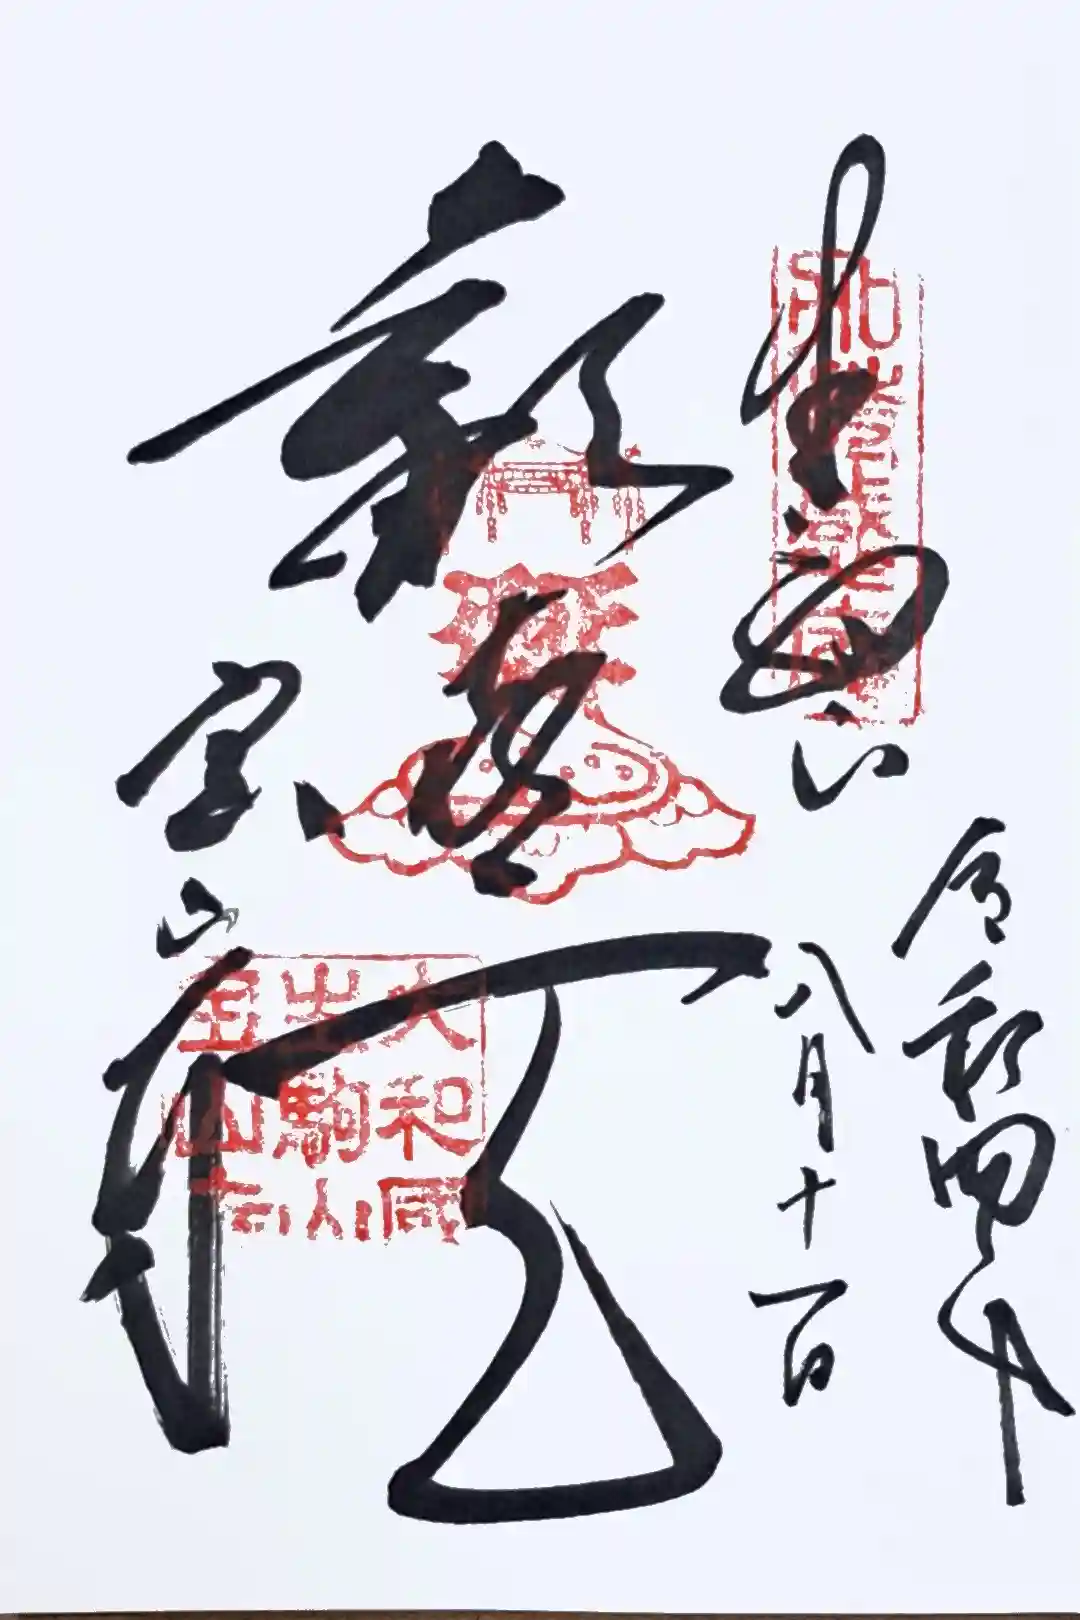 生駒山
歓喜天
宝山寺
令和四年
八月十一日
大和國
生駒山